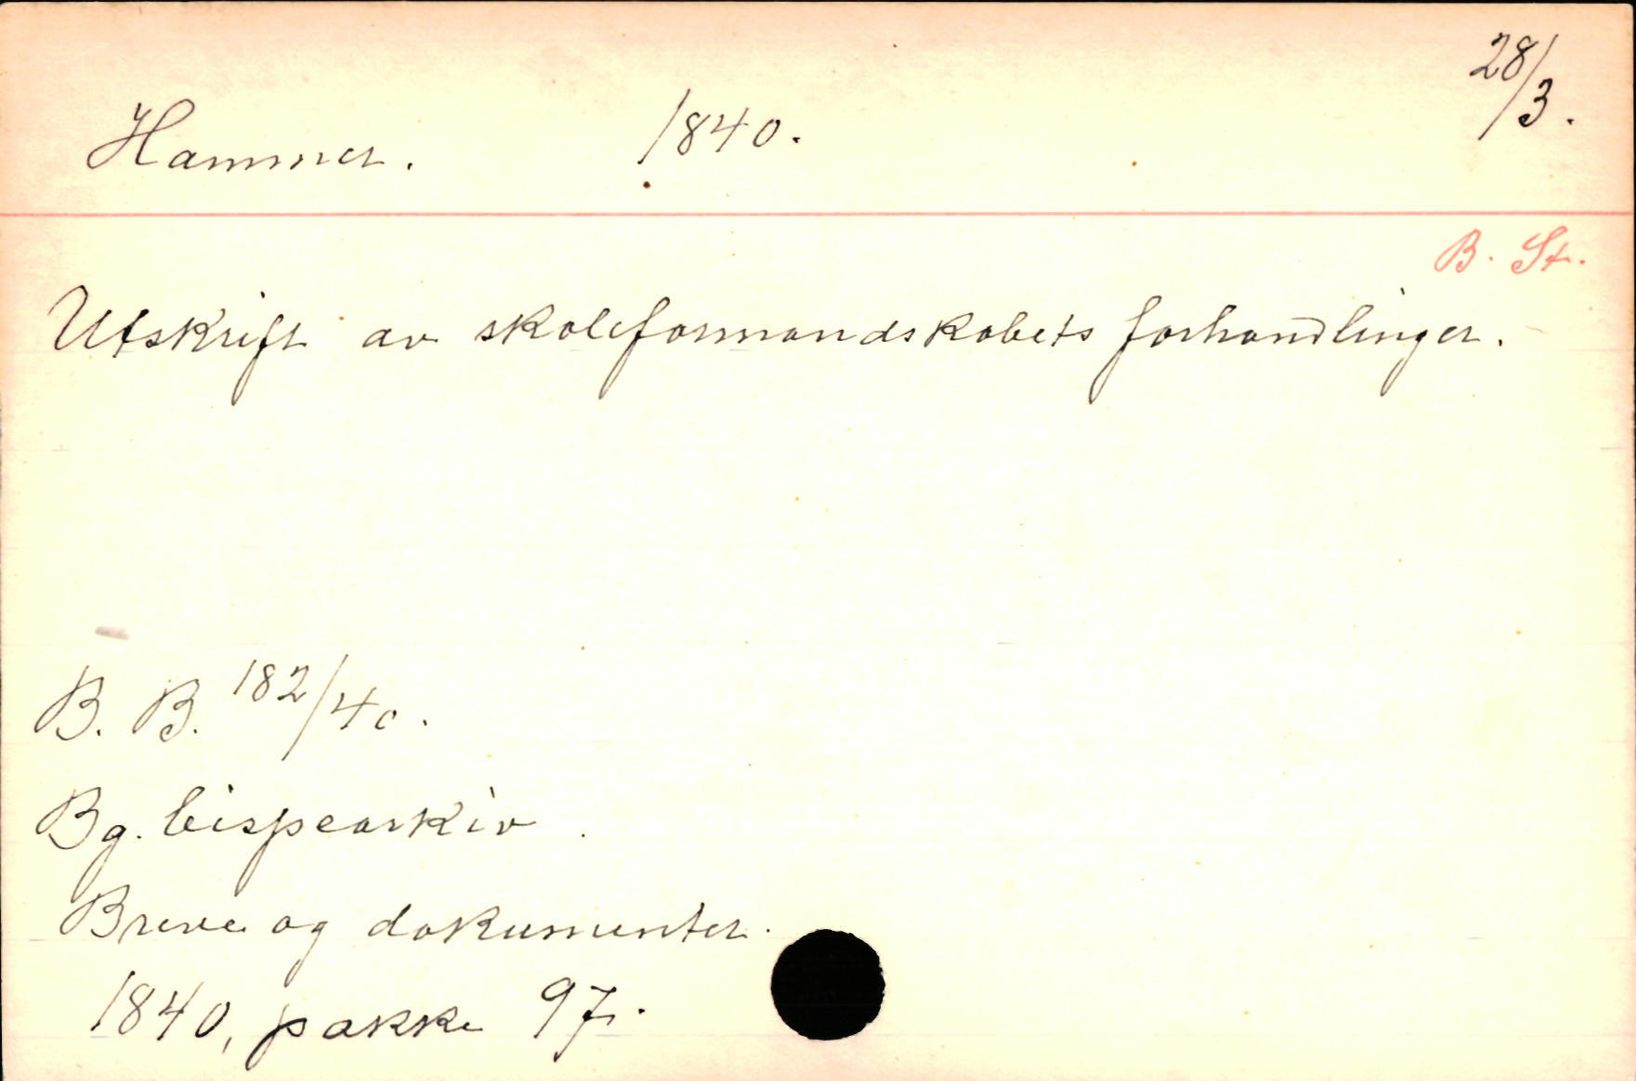 Hammer. 1840. 28/3.
B. St.
Utskrift av skoleformandskabets forhandlinger.
B. B. 182/40.
Bg. bispearkiv.
Breve og dokumenter.
1840, pakke 97.